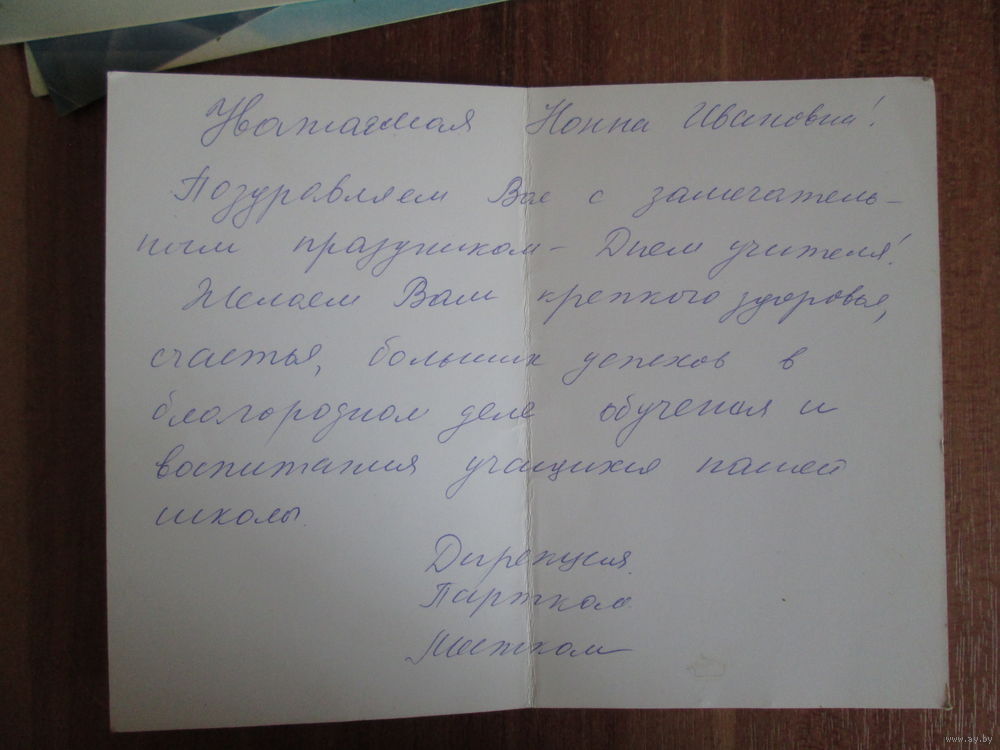 Уважаемая Нонна Ивановна!
Поздравляем Вас с замечатель-
ным праздником - Днем учителя!
Желаем Вам крепкого здоровья,
счастья, больших успехов в
благородном деле обучения и
воспитания учащихся нашей
школы.
Дирекция.
Партком
Местком
www.ay.by